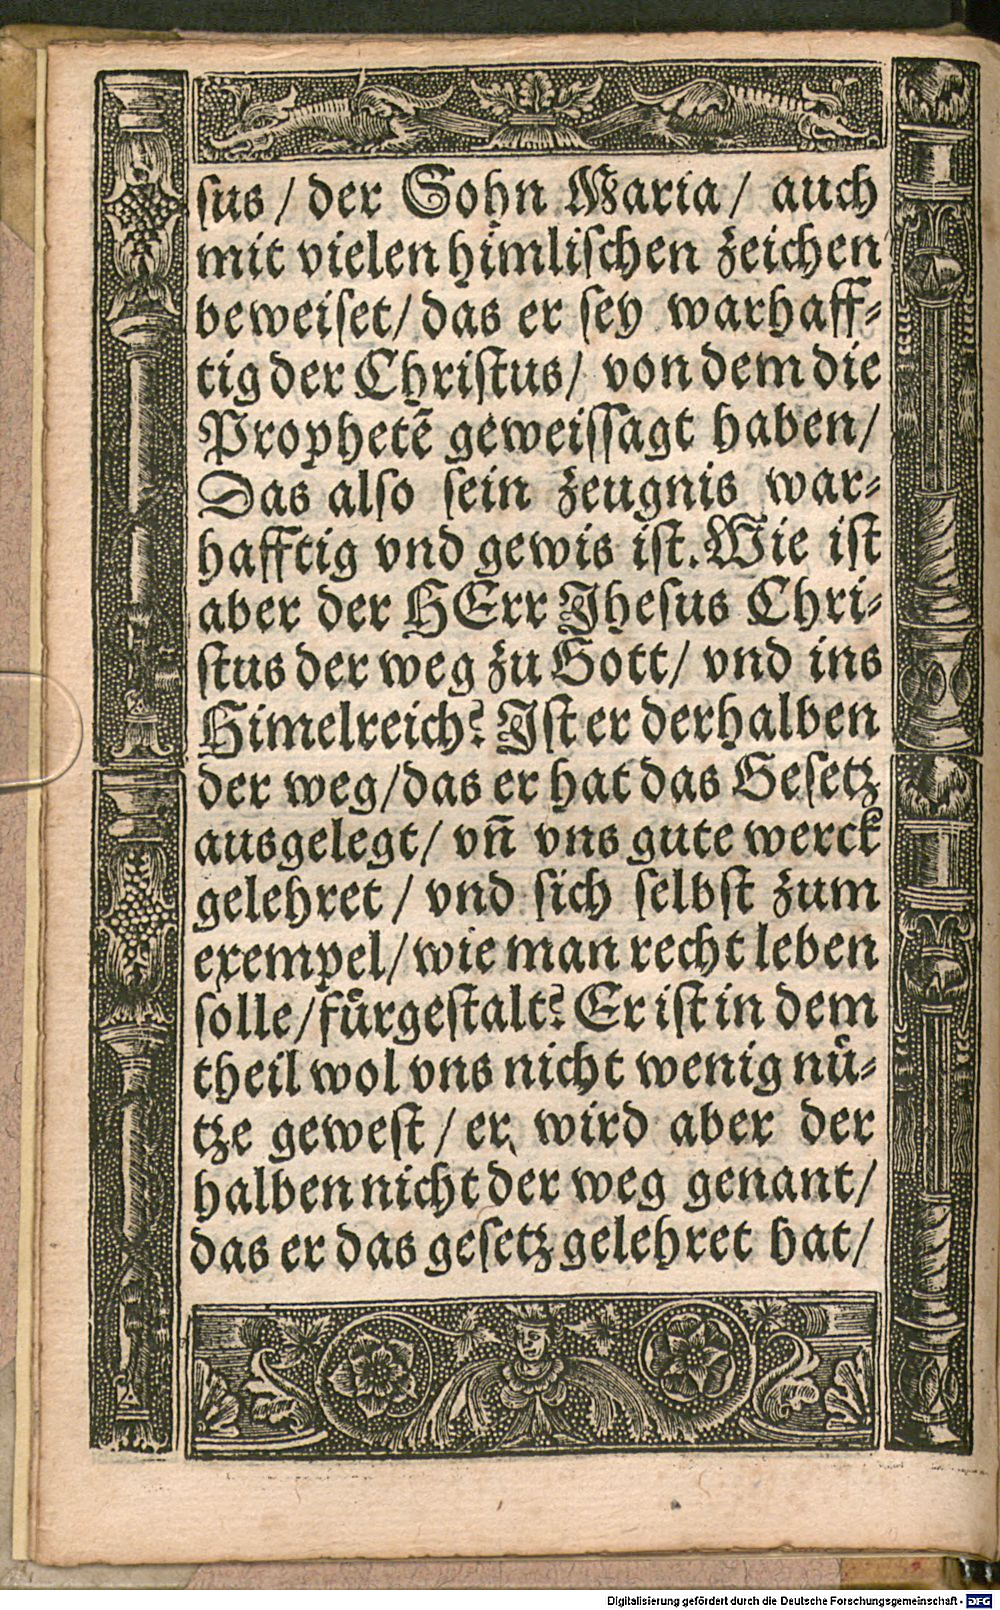 sus / der Sohn Maria / auch
mit vielen himlischen zeichen
beweiset / das er sey warhaff⸗
tig der Christus / von dem die
Prophetẽ geweissagt haben /
Das also sein zeugnis war⸗
hafftig vnd gewis ist. Wie ist
aber der HErr Jhesus Chri⸗
stus der weg zu Gott / vnd ins
Himelreich? Jst er derhalben
der weg / das er hat das Gesetz
ausgelegt / vñ vns gute werck
gelehret / vnd sich selbst zum
exempel / wie man recht leben
solle / fürgestalt? Er ist in dem
theil wol vns nicht wenig nü⸗
tze gewest / er wird aber der
halben nicht der weg genant /
das er das gesetz gelehret hat /
Digitalisierung gefördert durch die Deutsche Forschungsgemeinschaft - DFG